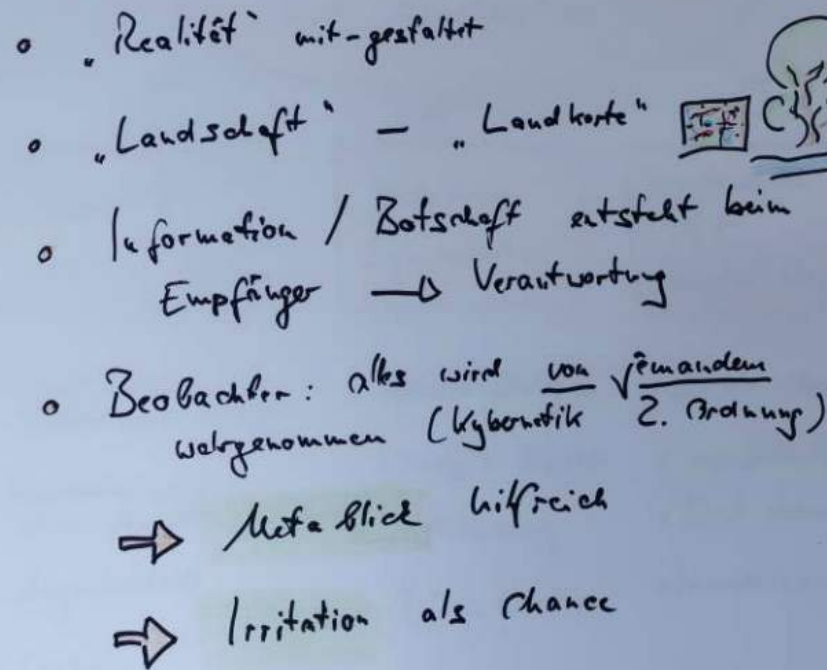 • „Realität“ mit-gestaltet
• „Landschaft“ – „Landkarte“
• Information / Botschaft entsteht beim
Empfänger → Verantwortung
• Beobachter: alles wird von jemandem
wahrgenommen (Kybernetik 2. Ordnung)
⇒ Metablick hilfreich
⇒ Irritation als Chance